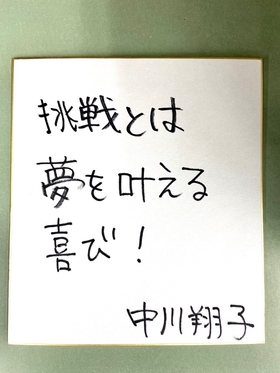 挑戦とは
夢を叶える
喜び！
中川翔子